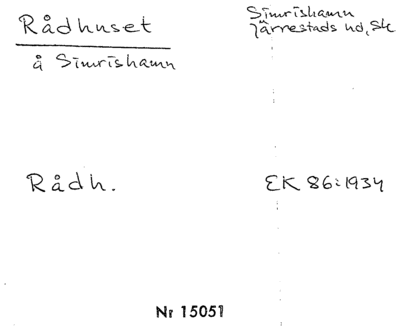 Rådhuset
å Simrishamn
Simrishamn
Järrestads hd, Sk
Rådh.
EK 86:1934
Nr 15051